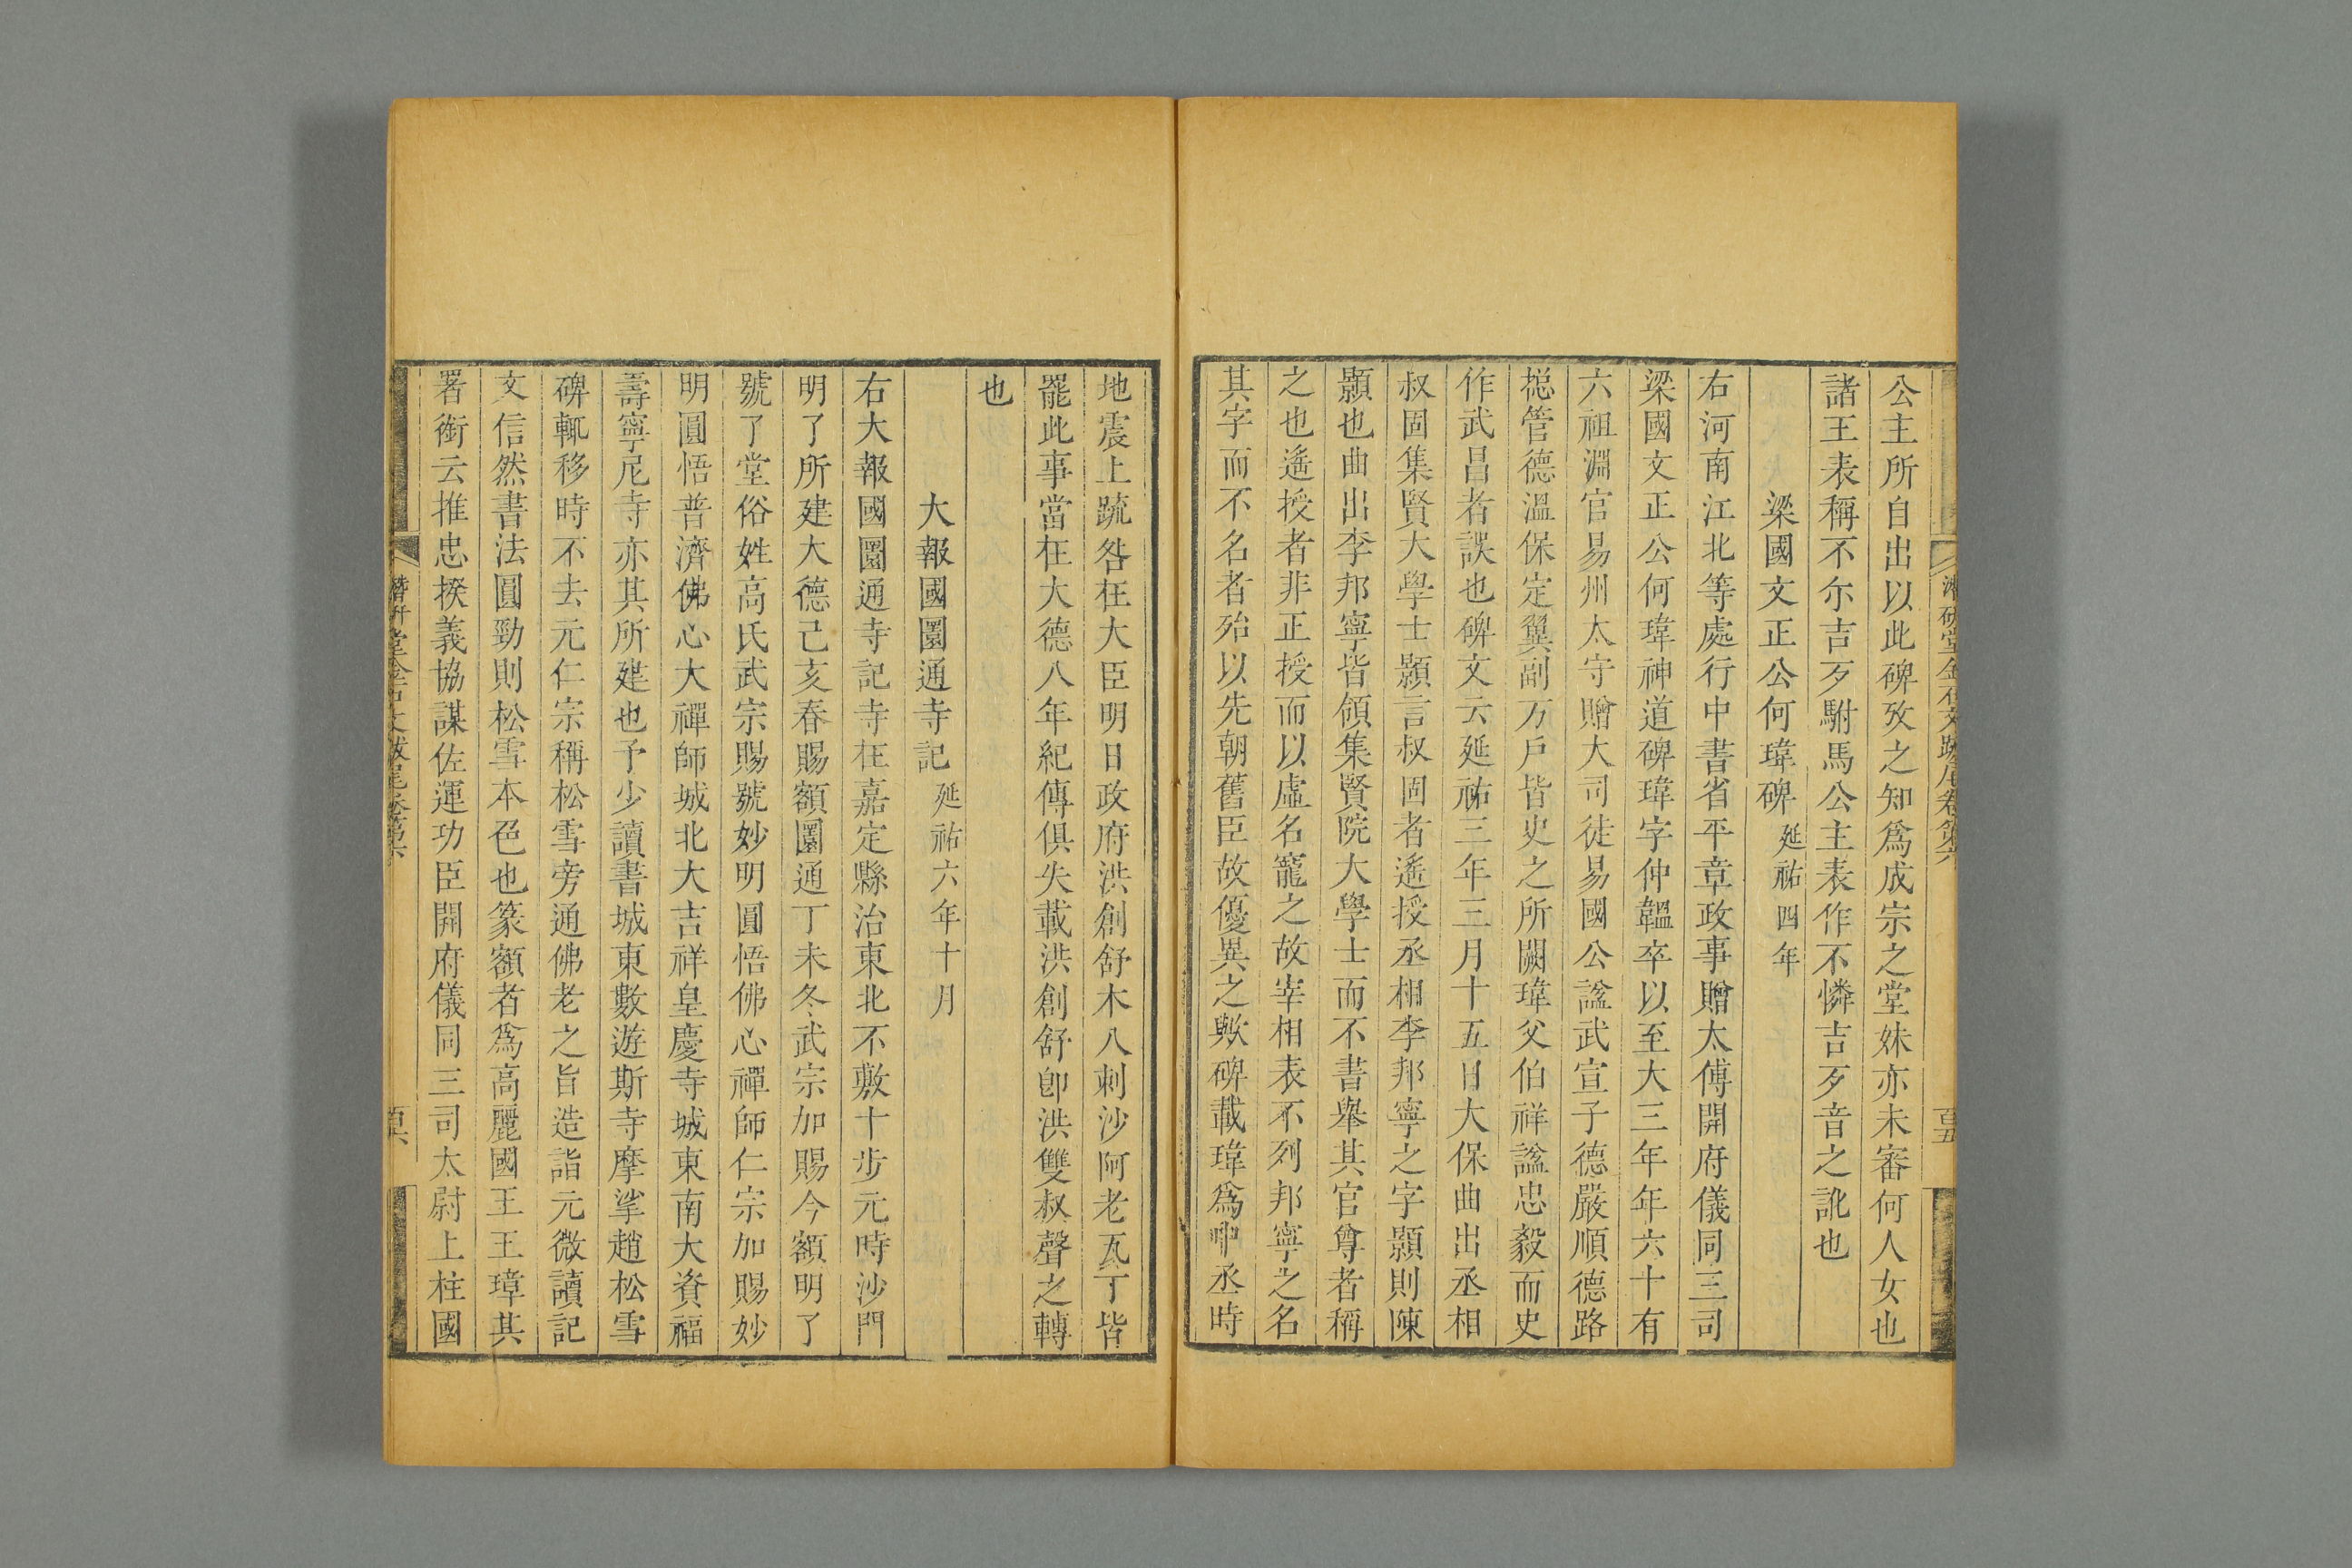 公主所自出以此碑攷之知爲成宗之堂妹亦未審何人女也
諸王表稱不尒吉歹駙馬公主表作不憐吉歹音之訛也
梁國文正公何瑋碑 延祐四年
右河南江北等處行中書省平章政事贈太傅開府儀同三司
梁國文正公何瑋神道碑瑋字仲韞卒以至大三年年六十有
六祖淵官易州太守贈大司徒易國公諡武宣子德嚴順德路
摠管德溫保定翼副万戶皆史之所闕瑋父伯祥諡忠毅而史
作武昌者誤也碑文云延祐三年三月十五日大保曲出丞相
叔固集賢大學士顥言叔固者遙授丞相李邦寧之字顥則陳
顥也曲出李邦寧皆領集賢院大學士而不書舉其官尊者稱
之也遙授者非正授而以虛名寵之故宰相表不列邦寧之名
其字而不名者殆以先朝舊臣故優異之歟碑載瑋爲中丞時
地震上疏咎在大臣明日政府洪創舒木八剌沙阿老瓦丁皆
罷此事當在大德八年紀傳俱失載洪創舒卽洪雙叔聲之轉
也
大報國圜通寺記 延祐六年十月
右大報國圜通寺記寺在嘉定縣治東北不數十步元時沙門
明了所建大德己亥春賜額圜通丁未冬武宗加賜今額明了
號了堂俗姓高氏武宗賜號妙明圓悟佛心禪師仁宗加賜妙
明圓悟普濟佛心大禪師城北大吉祥皇慶寺城東南大資福
壽寧尼寺亦其所建也予少讀書城東數遊斯寺摩挲趙松雪
碑輒移時不去元仁宗稱松雪旁通佛老之旨造詣元微讀記
文信然書法圓勁則松雪本色也篆額者爲高麗國王王璋其
署銜云推忠揆義協謀佐運功臣開府儀同三司太尉上柱國